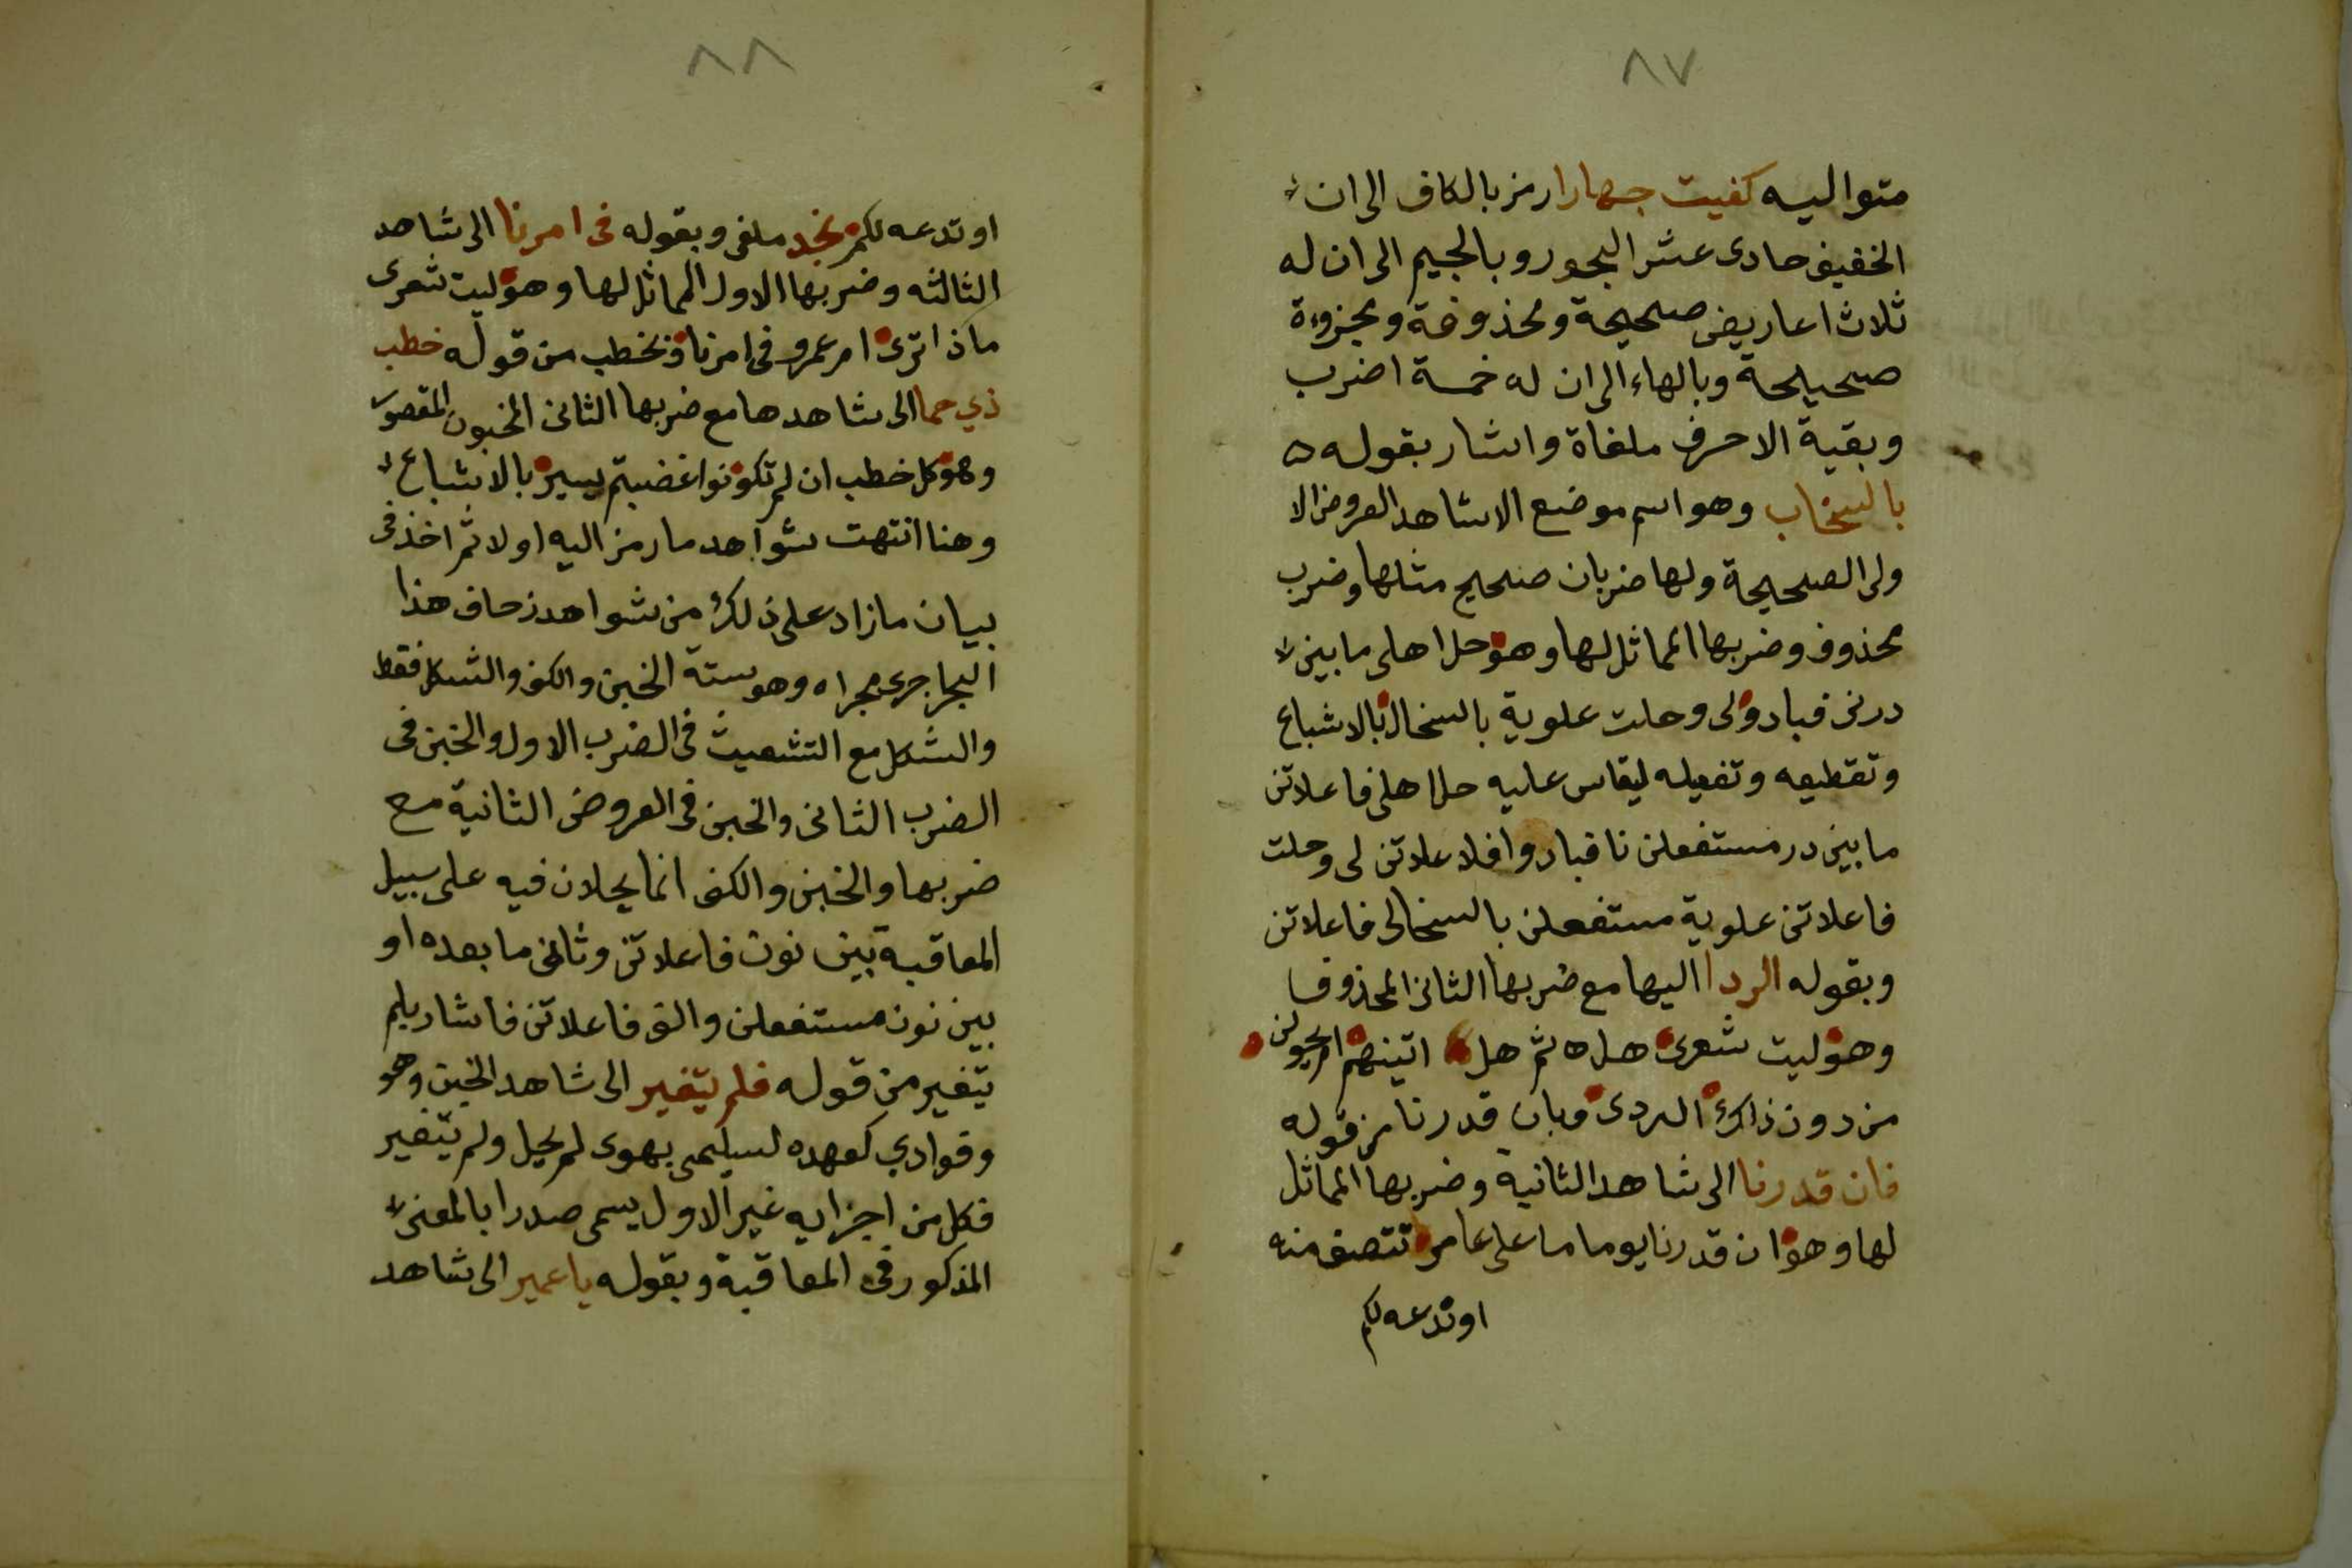 ٨٧
متواليه كفيت جهارا رمز بالكاف الى ان
الخفيف حادى عشر البحور وبالجيم الى ان له
ثلاث اعاريض صحيحة ومحذوفة ومجزوءة
صحيحة وبالهاء الى ان له خمسة اضرب
وبقية الاحرف ملغاة واشار بقوله
بالسخاب وهو اسم موضع الا شاهد العروض الا
ولى الصحيحة ولها ضربان صحيح مثلها وضرب
محذوف وضربها المماثل لها وهو حل اهلى ما بين
درنى فبادولى وحلت علوية بالسخال بالاشباع
وتقطيعه وتفعيله ليقاس عليه حلا اهلى فاعلاتن
ما بين در مستفعلن نا فبادوا فلا علاتن لى وحلت
فاعلاتن علوية مستفعلن بالسخالى فاعلاتن
وبقوله الردا اليها مع ضربها الثانى المحذوف
وهو ليت شعرى هل ثم هل اتينهم ام يحولن
من دون ذاك الردى وبان قدرنا من قوله
فان قدرنا الى شاهد الثانية وضربها المماثل
لها وهو ان قدرنا يوما ما على عامر تتصف منه
او ندعه لكم
٨٨
او تدعه لكم نجد ملغى وبقوله فى امرنا الى شاهد
الثالثه وضربها الاول المماثل لها وهو ليت شعرى
ماذا ترى ام عمرو فى امرنا وبخطب من قوله خطب
ذي حما الى شاهدها مع ضربها الثانى المخبون المقصور
وهو كل خطب ان لم تكونوا غضبتم يسير بالاشباع
وهنا انتهت شواهد ما رمز اليه اولا ثم اخذ فى
بيان ما زاد على ذلك من شواهد زحاف هذا
البحر اجرى مجراه وهو ستة الخبن والكف والشكل فقط
والشكل مع التشعيث فى الضرب الاول والخبن فى
الضرب الثانى والخبن فى العروض الثانية مع
ضربها والخبن والكف انما يحلان فيه على سبيل
المعاقبة بين نون فاعلاتن وثانى ما بعده او
بين نون مستفعلن والف فاعلاتن فاشار بلم
يتغير من قوله فلم يتغير الى شاهد الخبن وهو
وفوادي كعهده لسليمى بهوى لم يحل ولم يتغير
فكل من اجزايه غير الاول يسمى صدرا بالمعنى
المذكور فى المعاقبة وبقوله يا عمير الى شاهد